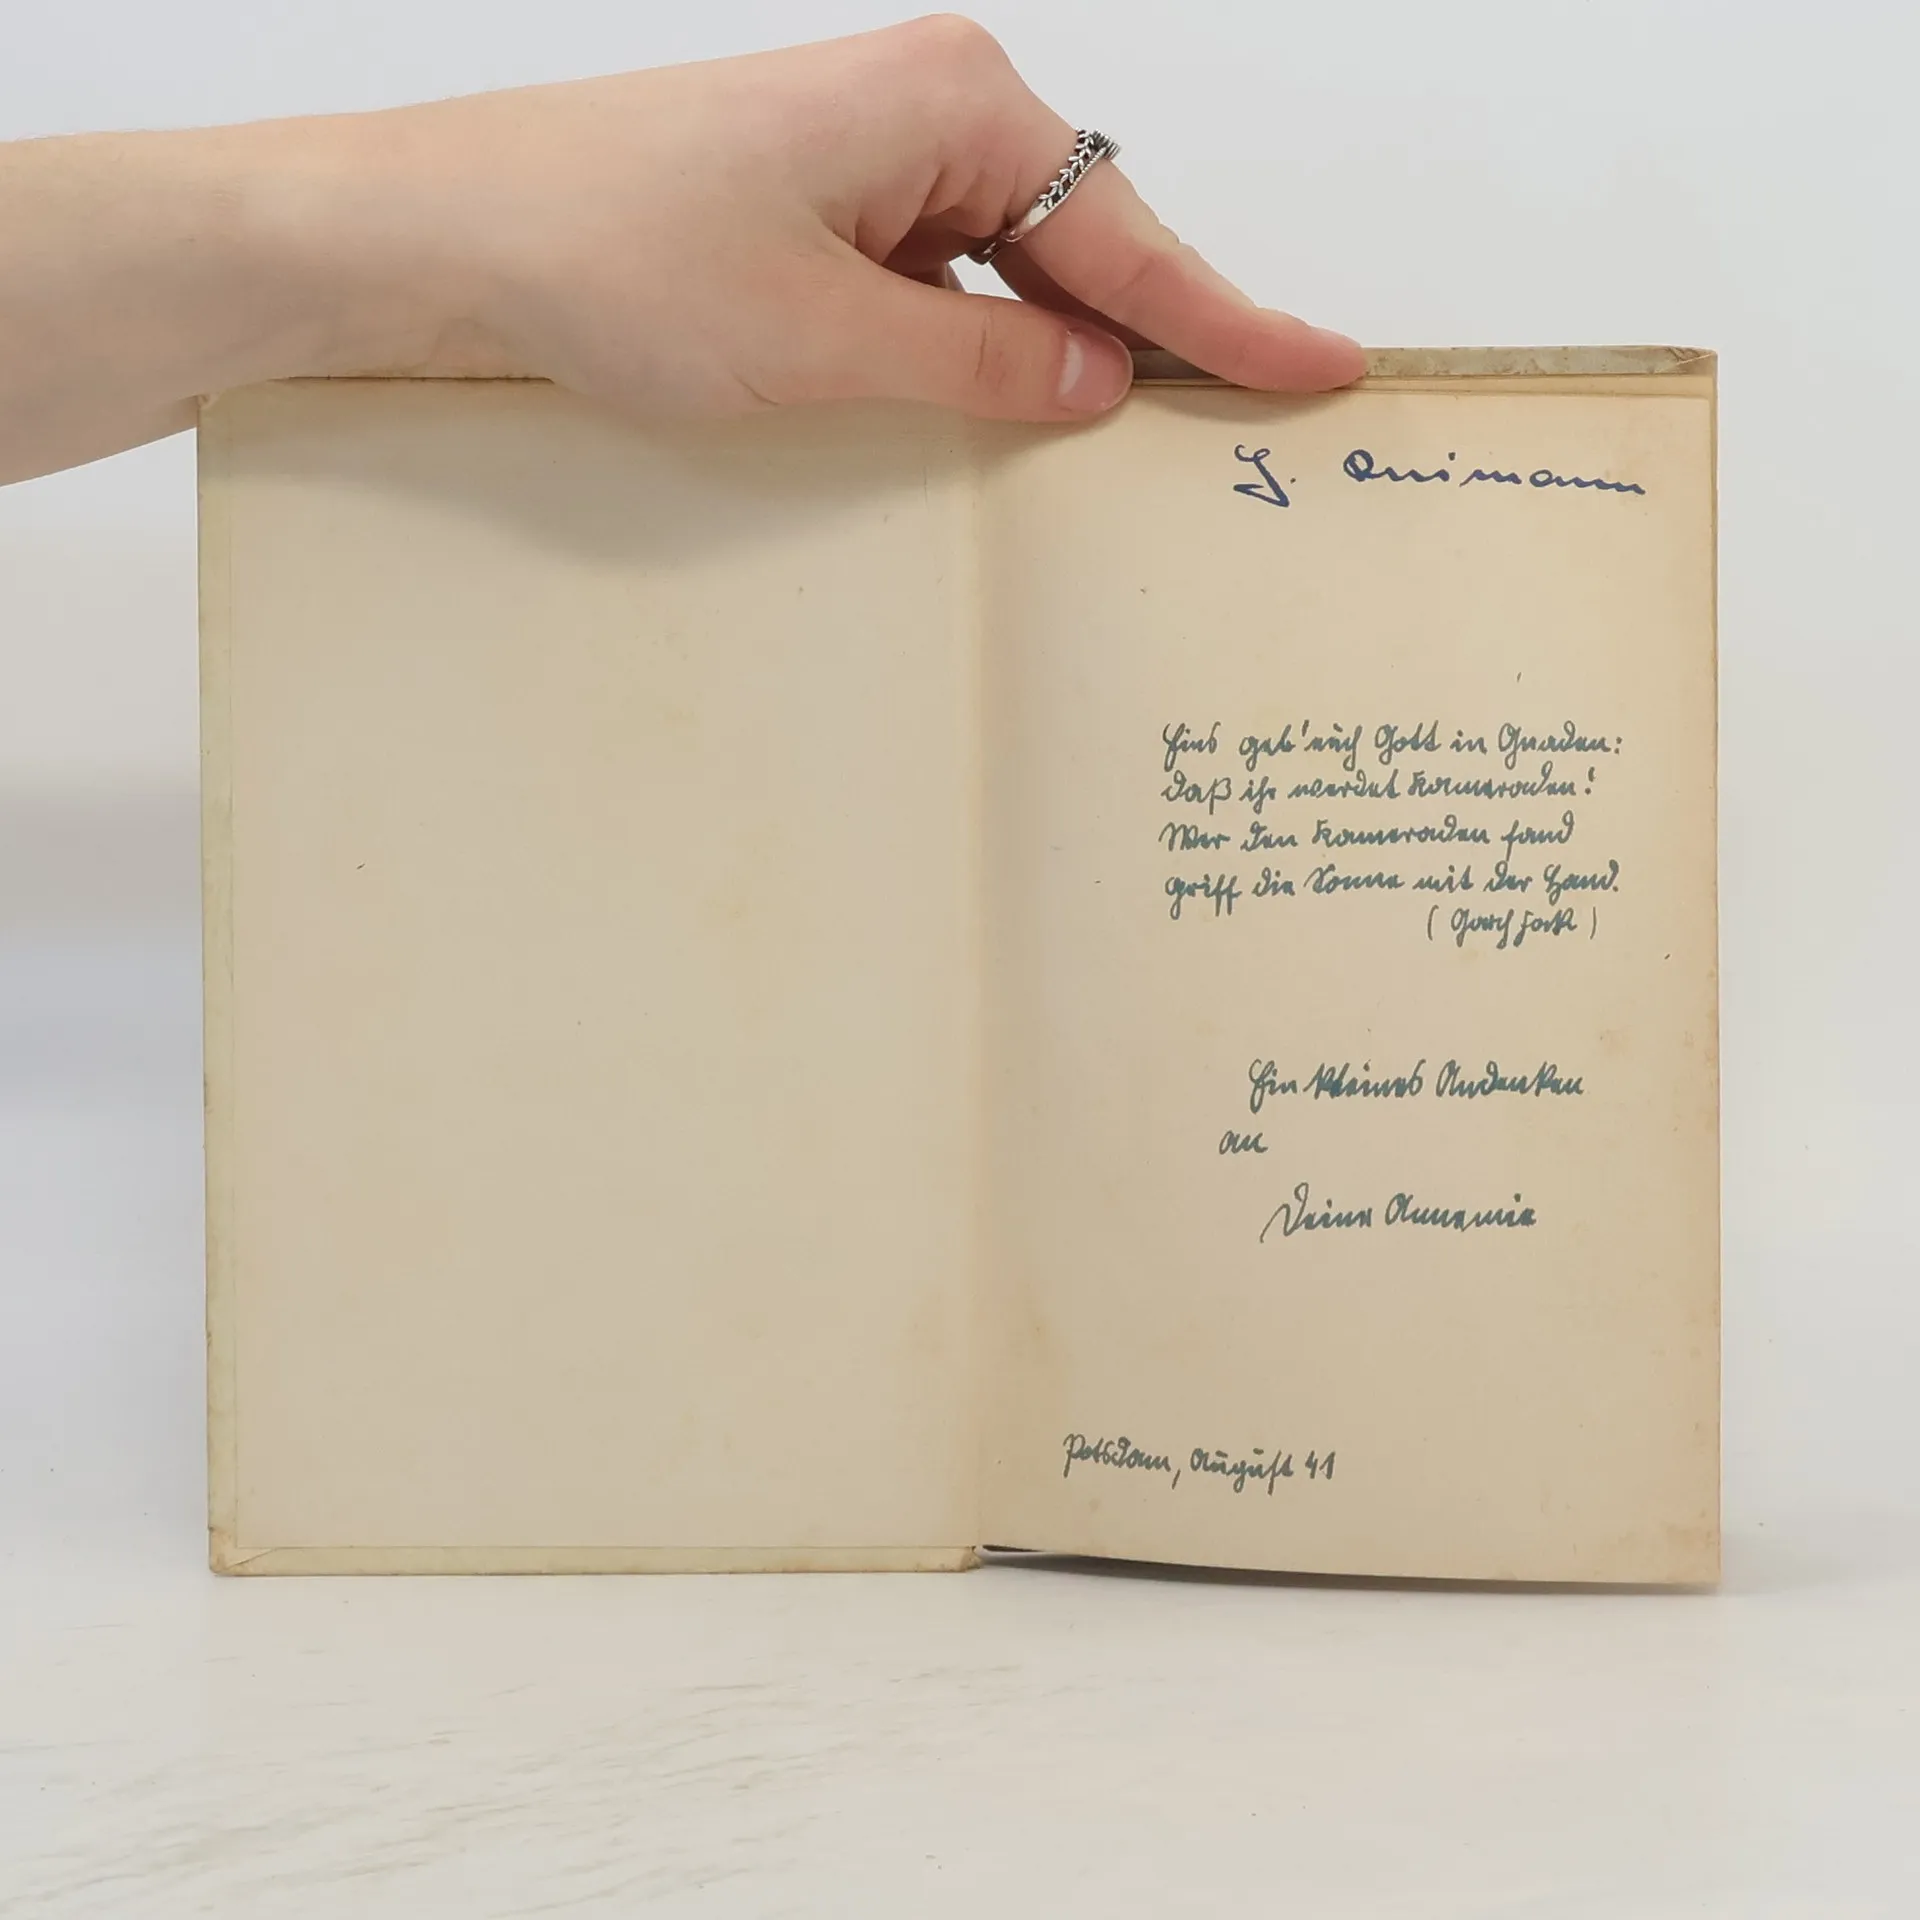 Eins geb' euch Gott in Gnaden:
daß ihr werdet Kameraden!
Wer den Kameraden fand
griff die Sonne mit der Hand.
(Gorch Fock)
Ein kleines Andenken
an
Deine Annemie
Potsdam, August 41